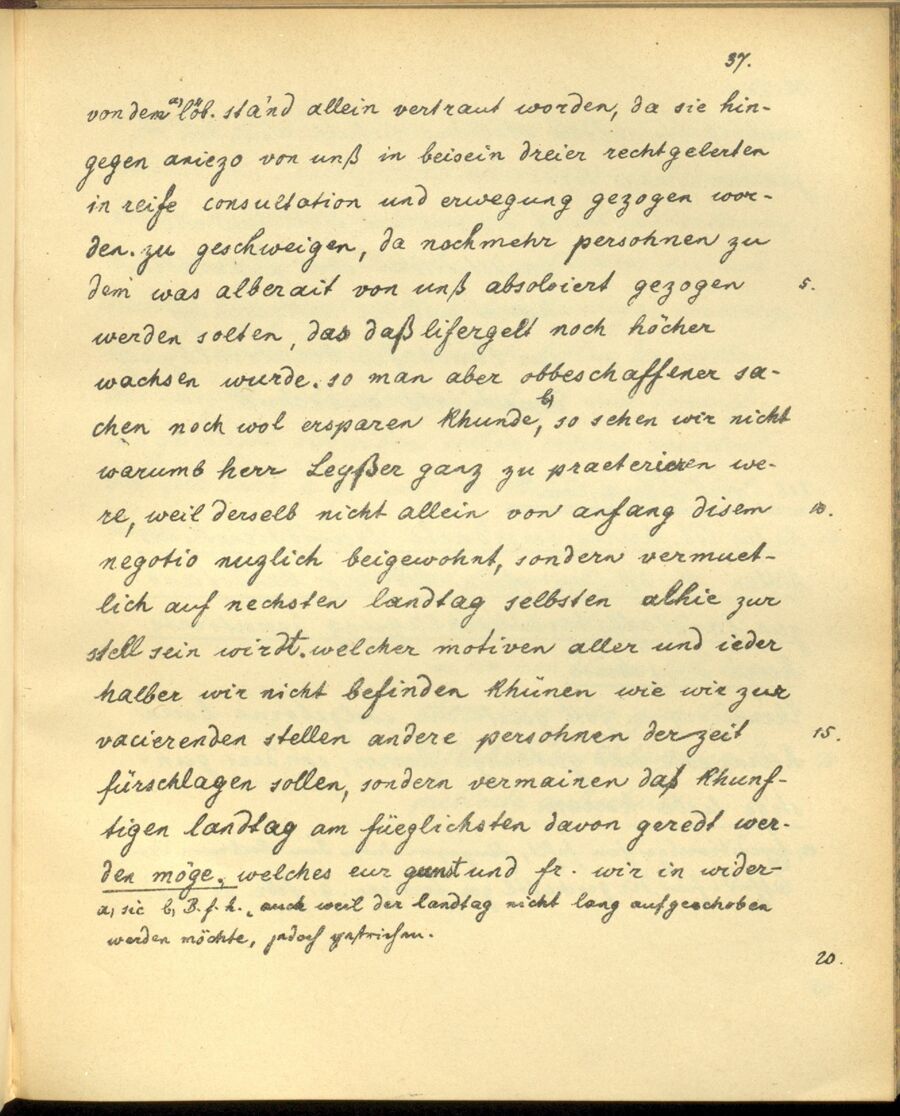 37.
von dem a) löb. ständ allein vertraut worden, da sie hin-
gegen aniezo von unß in beisein dreier rechtgelerten
in reife consultation und erwegung gezogen wor-
den. zu geschweigen, da noch mehr persohnen zu
dem was alberait von unß absolviert gezogen 5.
werden solten, das daß lifergelt noch höcher
wachsen wurde. so man aber obbeschaffener sa-
chen noch wol ersparen khunde b), so sehen wir nicht
warumb herr Leyßer ganz zu praeterieren we-
re, weil derselb nicht allein von anfang disem 10.
negotio nuzlich beigewohnt, sondern vermuet-
lich auf nechsten landtag selbsten alhie zur
stell sein wirdt. welcher motiven aller und ieder
halber wir nicht befinden khünen wie wir zur
vacierenden stellen andere persohnen der zeit 15.
fürschlagen sollen, sondern vermainen daß khunf-
tigen landtag am füeglichsten davon geredt wer-
den möge, welches eur gunst und fr. wir in wider-
a, sic b, B. f. h. auch weil der landtag nicht lang aufgeschoben
werden möchte, jedoch gestrichen.
20.